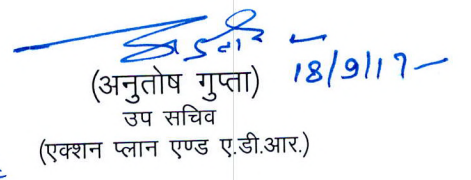 18/9/17
(अनुतोष गुप्ता)
उप सचिव
(एक्शन प्लान एण्ड ए.डी.आर.)